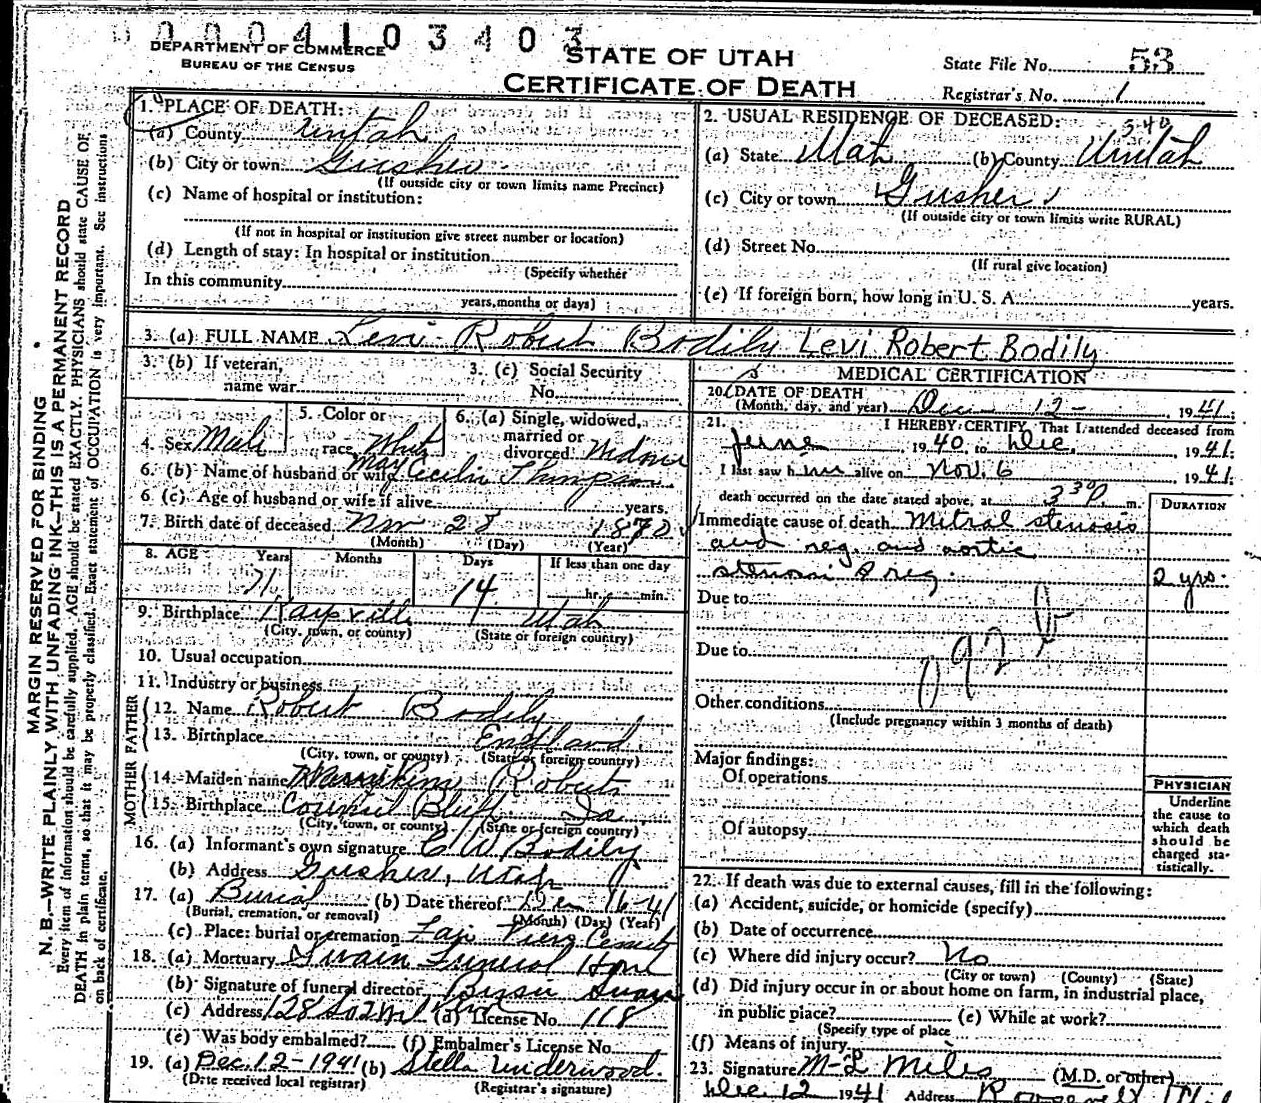 0004103403
DEPARTMENT OF COMMERCE
BUREAU OF THE CENSUS
STATE OF UTAH
CERTIFICATE OF DEATH
State File No. 53
Registrar's No. 1
MARGIN RESERVED FOR BINDING
N. B.—WRITE PLAINLY WITH UNFADING INK—THIS IS A PERMANENT RECORD
Every item of information should be carefully supplied. AGE should be stated EXACTLY. PHYSICIANS should state CAUSE OF
DEATH in plain terms, so that it may be properly classified. Exact statement of OCCUPATION is very important. See instructions
on back of certificate.
1. PLACE OF DEATH:
(a) County Uintah
(b) City or town Gusher
(If outside city or town limits name Precinct)
(c) Name of hospital or institution:
(If not in hospital or institution give street number or location)
(d) Length of stay: In hospital or institution
(Specify whether
In this community
years, months or days)
2. USUAL RESIDENCE OF DECEASED:
(a) State Utah (b) County Uintah
(c) City or town Gusher
(If outside city or town limits write RURAL)
(d) Street No.
(If rural give location)
(e) If foreign born, how long in U. S. A. years.
3. (a) FULL NAME Levi Robert Bodily Levi Robert Bodily
3. (b) If veteran,
name war
3. (c) Social Security
No.
4. Sex Male
5. Color or
race White
6. (a) Single, widowed,
married or
divorced
6. (b) Name of husband or wife May Cecilia Thompson
6 (c). Age of husband or wife if alive years.
7. Birth date of deceased Nov 28 1870
(Month) (Day) (Year)
8. AGE Years Months Days If less than one day
71 14 hr. min.
9. Birthplace Kaysville Utah
(City, town, or county) (State or foreign country)
10. Usual occupation
11. Industry or business
FATHER
12. Name Robert Bodily
13. Birthplace England
(City, town, or county) (State or foreign country)
MOTHER
14. Maiden name Roberts
15. Birthplace Council Bluff Ia
(City, town, or county) (State or foreign country)
16. (a) Informant's own signature C W Bodily
(b) Address Gusher, Utah
17. (a) Burial (b) Date thereof Dec 16-41
(Burial, cremation, or removal) (Month) (Day) (Year)
(c) Place: burial or cremation
18. (a) Mortuary Swain Funeral Home
(b) Signature of funeral director Swain
(c) Address (d) License No. 118
(e) Was body embalmed? (f) Embalmer's License No.
19. (a) Dec. 12-1941 (b) Stella Underwood.
(Date received local registrar) (Registrar's signature)
MEDICAL CERTIFICATION
20. DATE OF DEATH
(Month, day, and year) Dec 12 - , 1941.
21. I HEREBY CERTIFY, That I attended deceased from
June , 1940 to Dec. 1941.
I last saw him alive on Nov. 6 1941.
death occurred on the date stated above, at 3 30 P. m.
DURATION
Immediate cause of death Mitral stenosis
and reg. and aortic
stenosi & reg. 2 yrs.
Due to
Due to
Other conditions
(Include pregnancy within 3 months of death)
Major findings:
Of operations
Of autopsy
PHYSICIAN
Underline
the cause to
which death
should be
charged sta-
tistically.
22. If death was due to external causes, fill in the following:
(a) Accident, suicide, or homicide (specify)
(b) Date of occurrence
(c) Where did injury occur? No
(City or town) (County) (State)
(d) Did injury occur in or about home on farm, in industrial place,
in public place? (e) While at work?
(Specify type of place
(f) Means of injury
23. Signature M-L Miles (M.D. or other)
Dec. 12 1941 Address